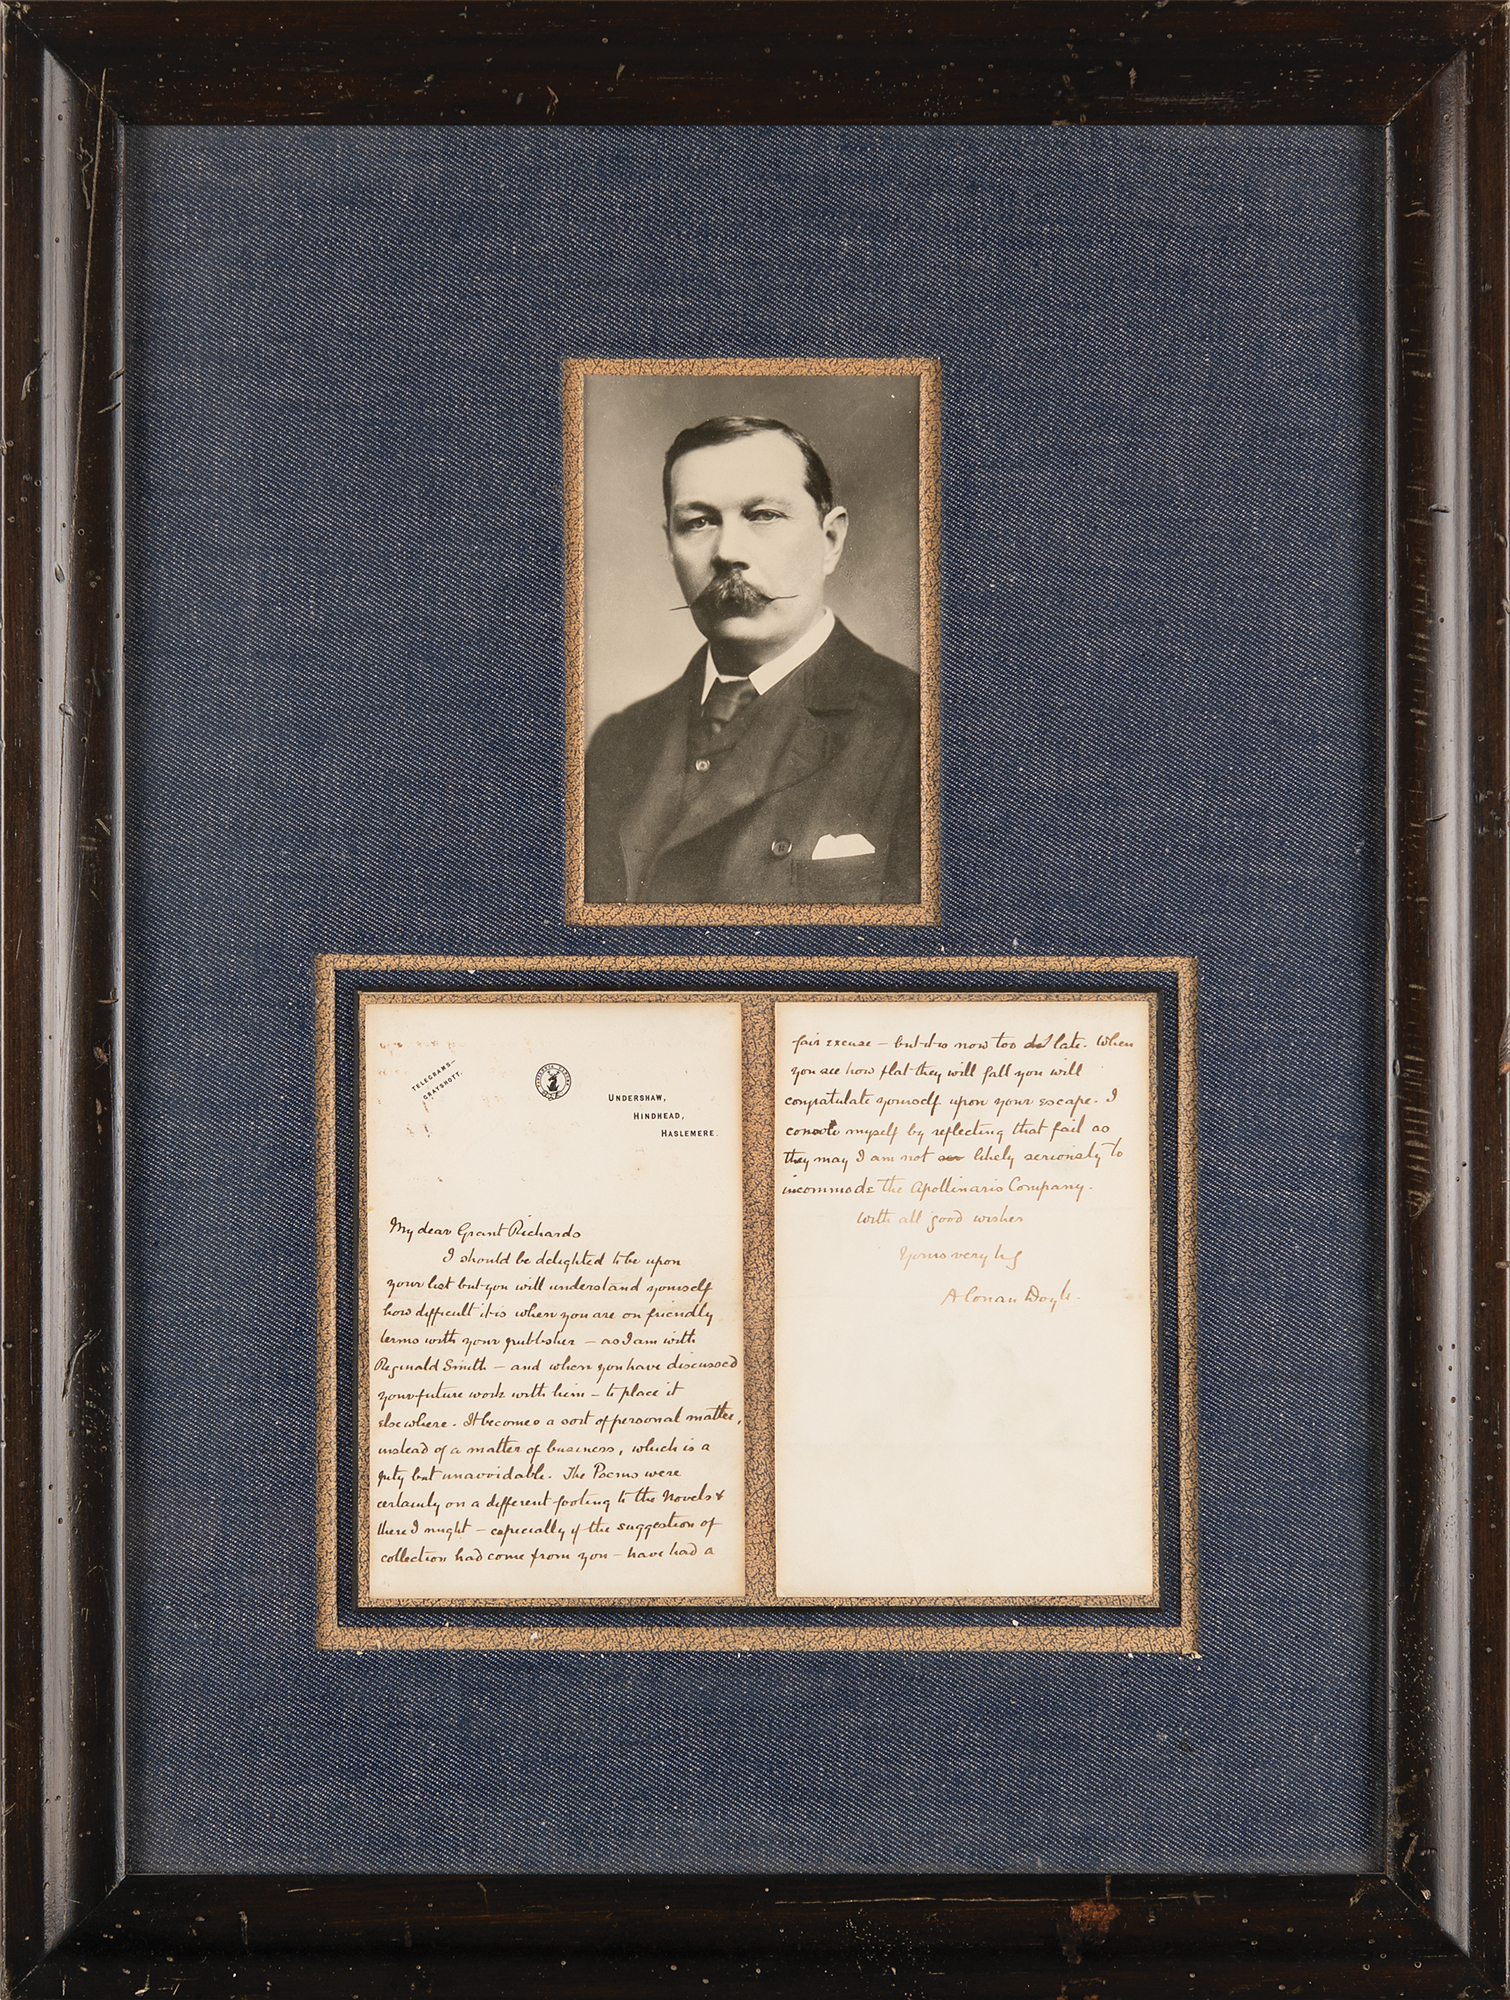 TELEGRAMS—
GRAYSHOTT.
UNDERSHAW,
HINDHEAD,
HASLEMERE.
My dear Grant Richards
I should be delighted to be upon
your list but you will understand yourself
how difficult it is when you are on friendly
terms with your publisher — as I am with
Reginald Smith — and when you have discussed
your future work with him — to place it
elsewhere. It becomes a sort of personal matter,
instead of a matter of business, which is a
pity but unavoidable. The Poems were
certainly on a different footing to the Novels &
there I might — especially if the suggestion of
collection had come from you — have had a
fair excuse — but it is now too late. When
you see how flat they will fall you will
congratulate yourself upon your escape. I
console myself by reflecting that fail as
they may I am not likely seriously to
incommode the Apollinaris Company.
With all good wishes
Yours very
A Conan Doyle.